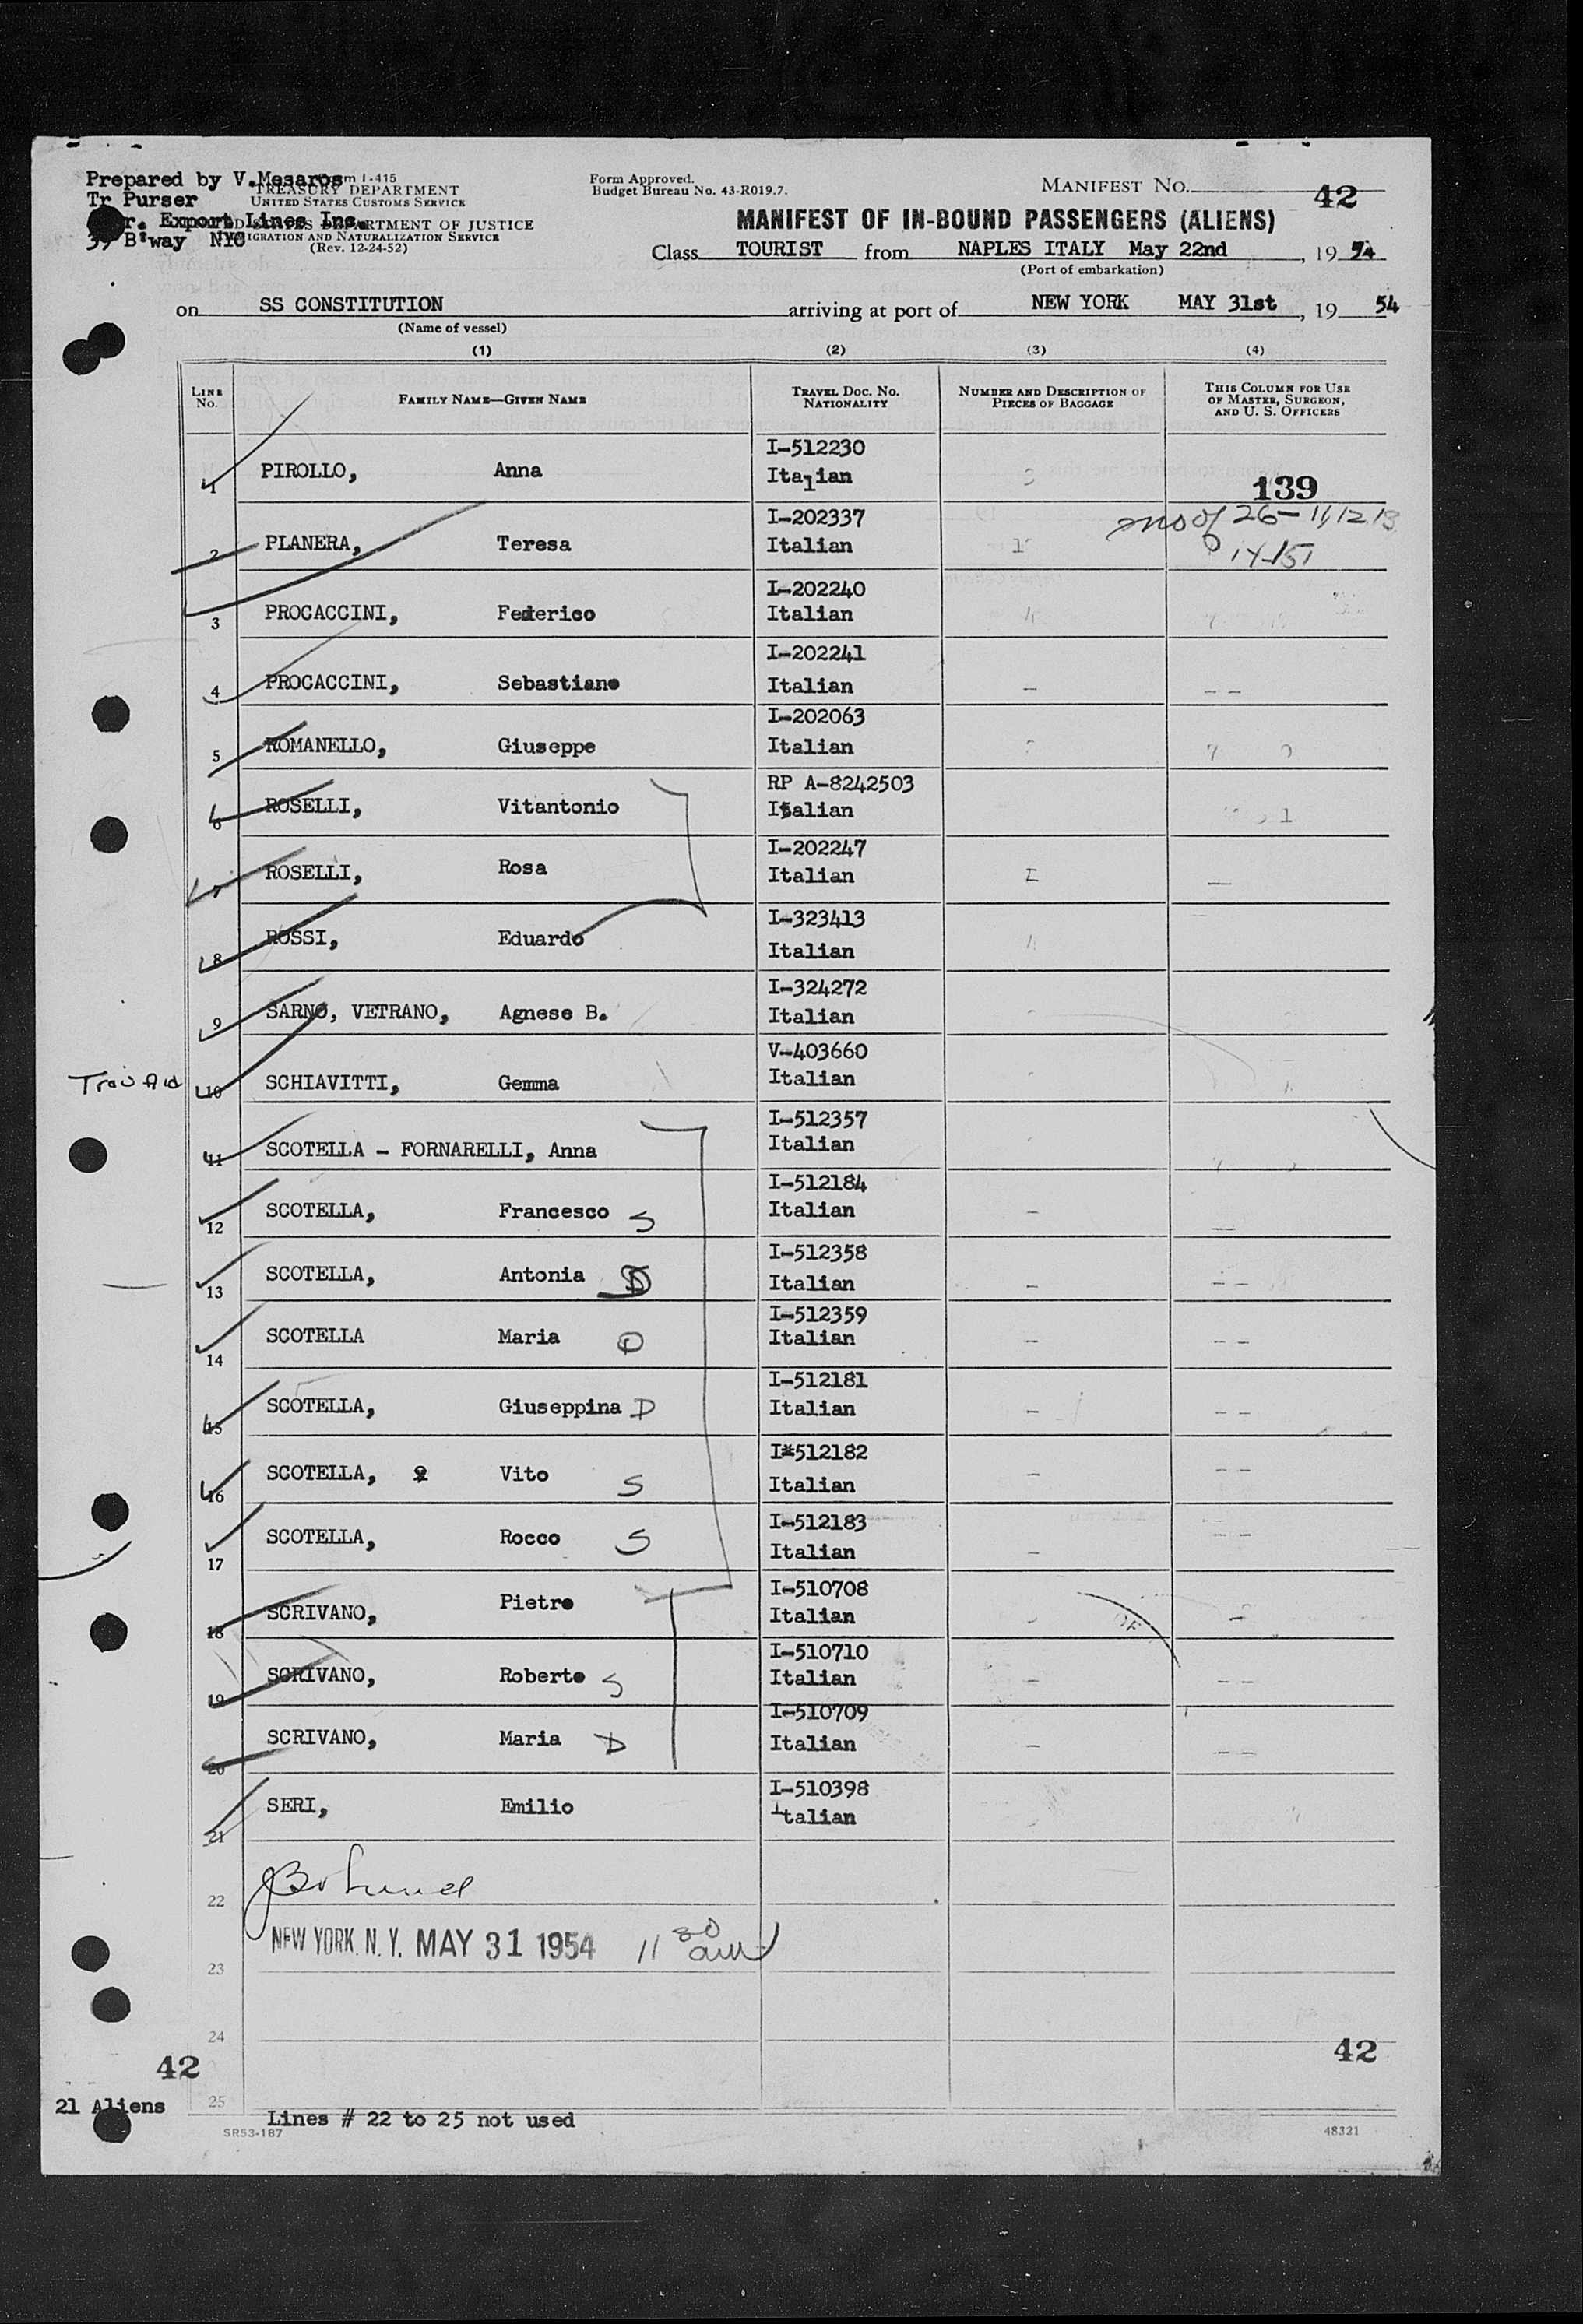 Prepared by V.Mesaros
Form I-415
TREASURY DEPARTMENT
Tr Purser
UNITED STATES CUSTOMS SERVICE
Export Lines Inc.
DEPARTMENT OF JUSTICE
39 B'way NYC
IMMIGRATION AND NATURALIZATION SERVICE
(Rev. 12-24-52)
Form Approved.
Budget Bureau No. 43-R019.7.
MANIFEST No. 42
MANIFEST OF IN-BOUND PASSENGERS (ALIENS)
Class TOURIST from NAPLES ITALY May 22nd, 19 54
(Port of embarkation)
on SS CONSTITUTION arriving at port of NEW YORK MAY 31st, 19 54
(Name of vessel)
(1) (2) (3) (4)
LINE No. FAMILY NAME—GIVEN NAME TRAVEL DOC. No. NATIONALITY NUMBER AND DESCRIPTION OF PIECES OF BAGGAGE THIS COLUMN FOR USE OF MASTER, SURGEON, AND U. S. OFFICERS
1 PIROLLO, Anna I-512230 Italian 3 139
2 PLANERA, Teresa I-202337 Italian 1 26- 11, 12, 13
14-15
3 PROCACCINI, Federico I-202240 Italian 4
4 PROCACCINI, Sebastiano I-202241 Italian — — —
5 ROMANELLO, Giuseppe I-202063 Italian
6 ROSELLI, Vitantonio RP A-8242503 Italian 1
7 ROSELLI, Rosa I-202247 Italian —
8 ROSSI, Eduardo I-323413 Italian
9 SARNO, VETRANO, Agnese B. I-324272 Italian
Trav Aid 10 SCHIAVITTI, Gemma V-403660 Italian
11 SCOTELLA - FORNARELLI, Anna I-512357 Italian
12 SCOTELLA, Francesco S I-512184 Italian — —
13 SCOTELLA, Antonia D I-512358 Italian — — —
14 SCOTELLA Maria D I-512359 Italian — — —
15 SCOTELLA, Giuseppina D I-512181 Italian — — —
16 SCOTELLA, Vito S I-512182 Italian — — —
17 SCOTELLA, Rocco S I-512183 Italian — — —
18 SCRIVANO, Pietro I-510708 Italian
19 SCRIVANO, Roberto S I-510710 Italian — — —
20 SCRIVANO, Maria D I-510709 Italian — — —
21 SERI, Emilio I-510398 Italian
22
NEW YORK N. Y. MAY 31 1954 11 30 am
23
24
42 42
25
21 Aliens
Lines # 22 to 25 not used
SR53-187 48321